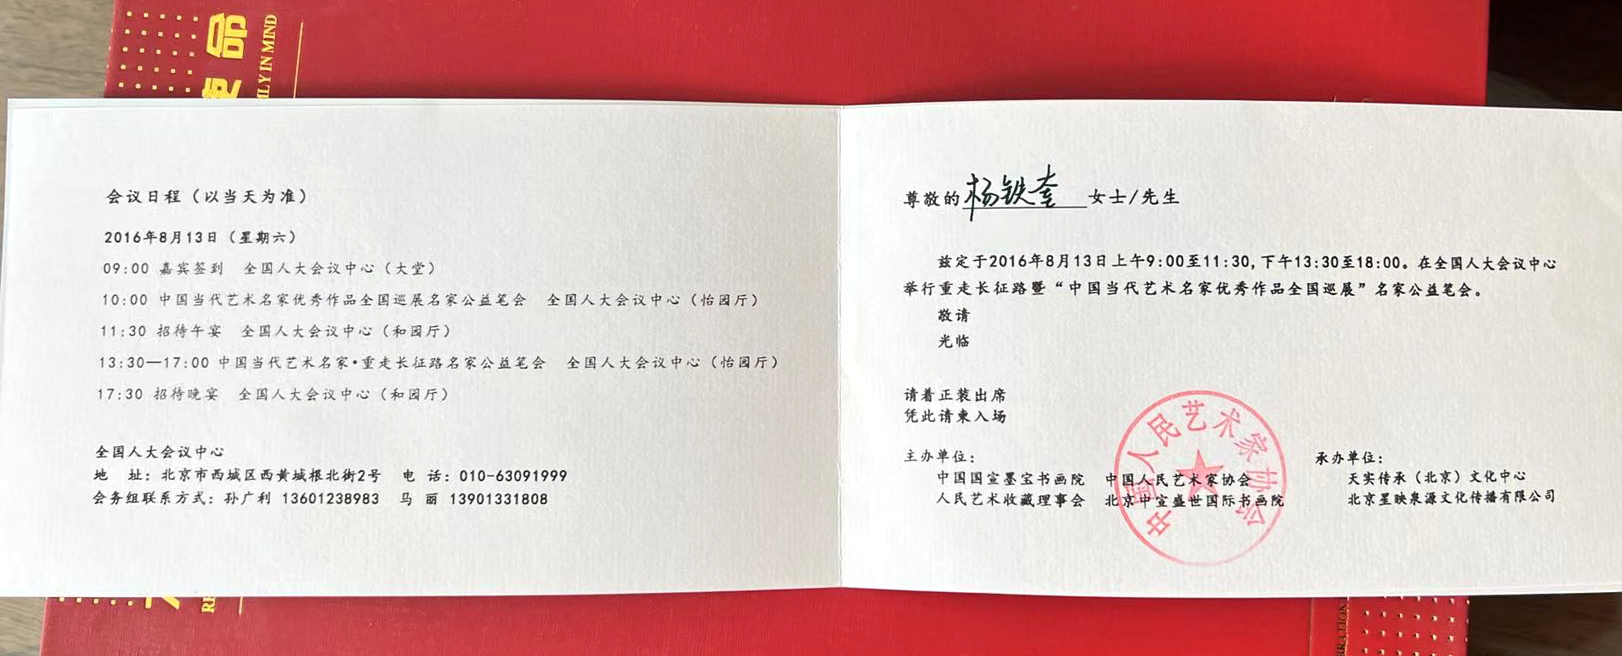 命
ILY IN MIND
会议日程（以当天为准）
2016年8月13日（星期六）
09:00 嘉宾签到 全国人大会议中心（大堂）
10:00 中国当代艺术名家优秀作品全国巡展名家公益笔会 全国人大会议中心（怡园厅）
11:30 招待午宴 全国人大会议中心（和园厅）
13:30—17:00 中国当代艺术名家·重走长征路名家公益笔会 全国人大会议中心（怡园厅）
17:30 招待晚宴 全国人大会议中心（和园厅）
全国人大会议中心
地 址：北京市西城区西黄城根北街2号 电 话：010-63091999
会务组联系方式：孙广利 13601238983 马 丽 13901331808
尊敬的杨铁奎 女士/先生
兹定于2016年8月13日上午9:00至11:30,下午13:30至18:00。在全国人大会议中心
举行重走长征路暨“中国当代艺术名家优秀作品全国巡展”名家公益笔会。
敬请
光临
请着正装出席
凭此请柬入场
主办单位：
中国国宣墨宝书画院 中国人民艺术家协会
人民艺术收藏理事会 北京中宣盛世国际书画院
承办单位：
天实传承（北京）文化中心
北京星映泉源文化传播有限公司
中国人民艺术家协会